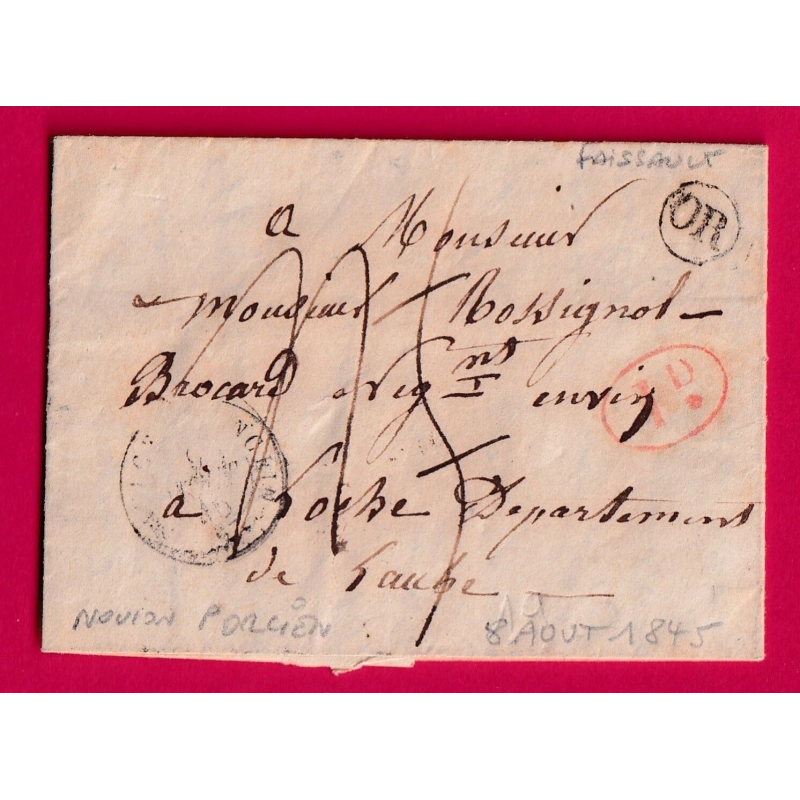 FAISSAULT
OR
a Monsieur
Monsieur Rossignol
Brocard Neg nt envin
a Loche Departement
de Laube
NOVION PORCIEN
8 AOUT 1845